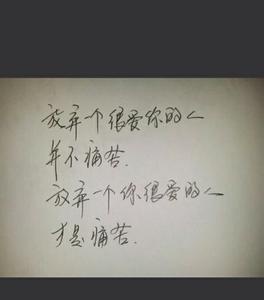 放弃一个很爱你的人
并不痛苦.
放弃一个你很爱的人
才是痛苦.